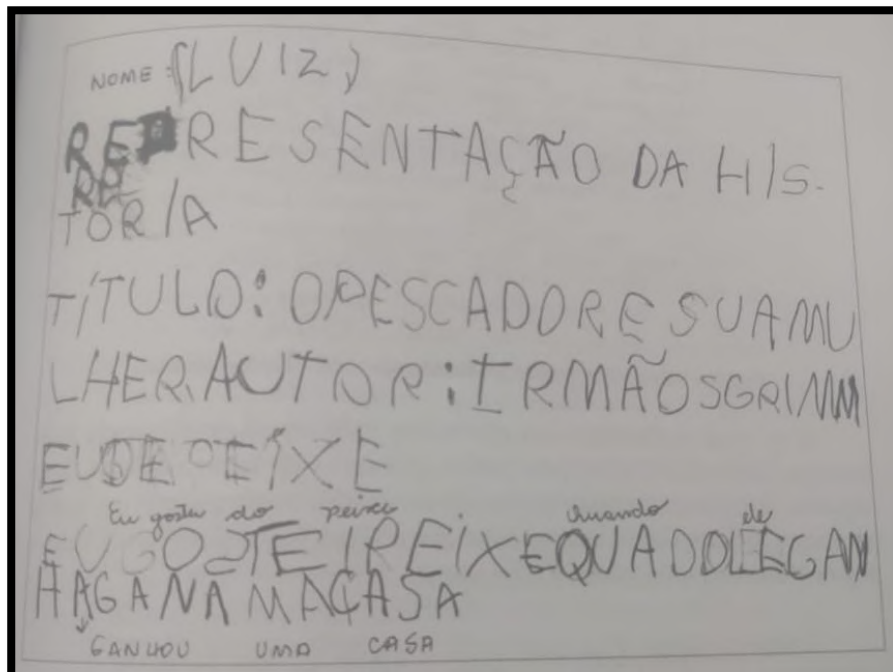 NOME: (LUIZ)
REPRESENTAÇÃO DA HIS-
TÓRIA
TÍTULO: OPESCADORESUAMU
LHER. AUTOR: IRMÃOSGRIMM
EUDEPEIXE
Eu gostei do peixe Quando ele
EUGOSTEIPEIXEQUADOLEGAN
HAGANAMACASA
GANHOU UMA CASA